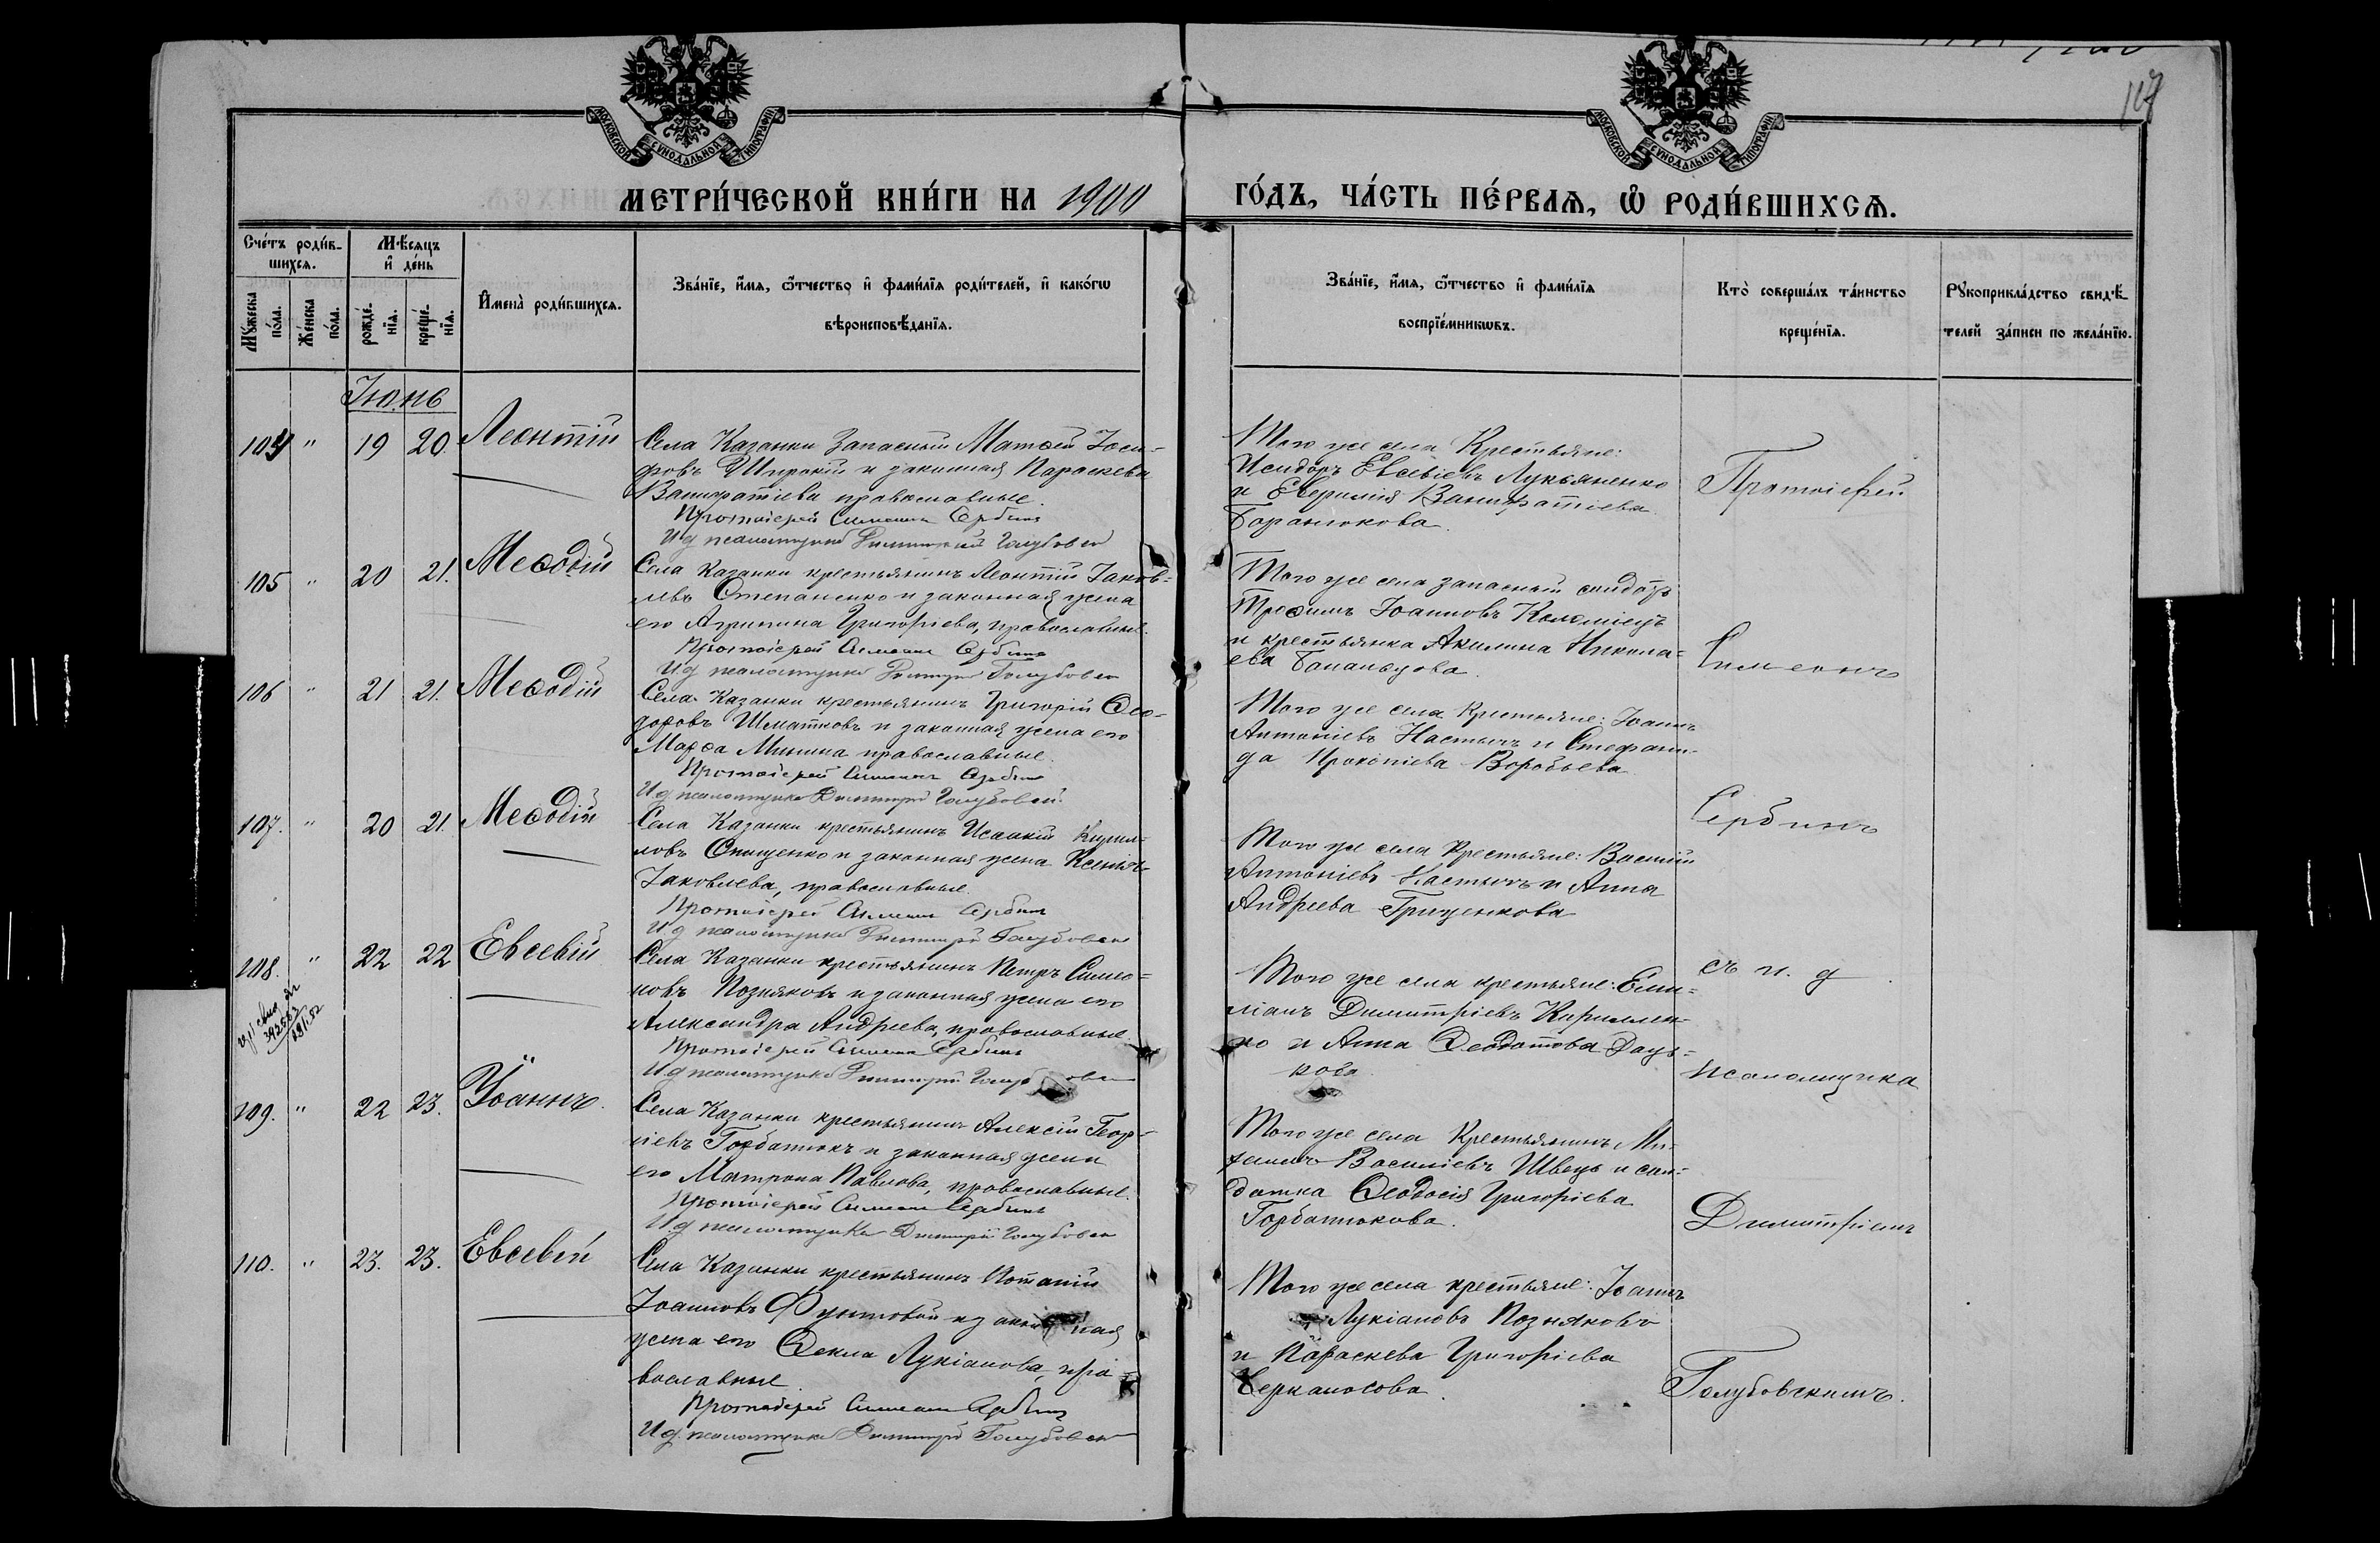 117
МОСКОВСКОЙ СУНОДАЛЬНОЙ ТИПОГРАФІИ
МОСКОВСКОЙ СУНОДАЛЬНОЙ ТИПОГРАФІИ
МЕТРИ́ЧЕСКОЙ КНИ́ГИ НА 1900
ГО́ДЪ, ЧА́СТЬ ПЕ́РВАѦ, Ѡ РОДИ́ВШИХСѦ.
Сче́тъ роди́в-
шихсѧ.
Мѣ́сѧцъ
и де́нь
Му́жеска
по́ла.
Же́нска
по́ла.
рожде́-
нїѧ.
креще́-
нїѧ.
Имена̀ роди́вшихсѧ.
Зва́нїе, и́мѧ, ѻ́тчество и фами́лїѧ роди́телей, и како́гѡ
вѣроисповѣ́данїѧ.
Зва́нїе, и́мѧ, ѻ́тчество и фами́лїѧ
воспрїе́мникѡвъ.
Кто̀ соверша́лъ та́инство
креще́нїѧ.
Рꙋкоприкла́дство свидѣ́-
телей за́писи по жела́нїю.
Іюнь
104 " 19 20. Леонтій
Села Казанки Запасный Матѳей Іоси-
фовъ Широкій и законная Параскева
Ванифатіева православные.
Протоіерей Симеонъ Сербинъ
И д псаломщика Димитрій Голубовскій
Того же села Крестьяне:
Исидоръ Евсевіевъ Лукьяненко
и Евфимія Ванифатіева
Баранюкова.
105 " 20 21. Меѳодій
Села Казанки крестьянинъ Леонтій Іаков-
левъ Степаненко и законная жена
его Агрипина Григоріева, православные.
Протоіерей Симеонъ Сербинъ
И д псаломщика Димитрій Голубовскій
Того же села запасный солдатъ
Трофимъ Іоанновъ Коломіецъ
и крестьянка Акилина Никола-
ева
106 " 21 21. Меѳодій
Села Казанки крестьянинъ Григорій Ѳео-
доровъ Шматковъ и законная жена его
Марѳа Минина православные.
Протоіерей Симеонъ Сербинъ
И д псаломщика Димитрій Голубовскій
Того же села Крестьяне: Іоаннъ
Антоніевъ Настычъ и Стефани-
да Прокопіева Воробьева
107. " 20 21. Меѳодій
Села Казанки крестьянинъ Исаакій Кирил-
ловъ Онищенко и законная жена Ксенія
Іаковлева, православные.
Протоіерей Симеонъ Сербинъ
И д псаломщика Димитрій Голубовскій
Того же села Крестьяне: Василій
Антоніевъ Настычъ и Анна
Андреева Гриценкова
108. " 22 22 Евсевій
Села Казанки крестьянинъ Петръ Симео-
новъ Позняковъ и законная жена его
Александра Андреева, православные.
Протоіерей Симеонъ Сербинъ
И д псаломщика Димитрій Голубовскій
Того же села крестьяне: Еми-
ліанъ Димитріевъ Кириллен-
ко и Анна Ѳеодотова Даць-
кова.
109. " 22 23. Іоаннъ.
Села Казанки крестьянинъ Алексій Геор-
гіевъ Горбатюкъ и законная жена
его Матрона Павлова, православные.
Протоіерей Симеонъ Сербинъ
И д псаломщика Димитрій Голубовскій
Того же села Крестьянинъ Ми-
хаилъ Василіевъ Швецъ и сол-
датка Ѳеодосія Григоріева
Горбатюкова.
110. " 23. 23. Евсевій
Села Казанки крестьянинъ Потапій
Іоанновъ Фунтовый и законная
жена его Ѳекла Лукіанова, пра-
вославные.
Протоіерей Симеонъ Сербинъ
И д псаломщика Димитрій Голубовскій
Того же села крестьяне: Іоаннъ
Лукіановъ Позняковъ
и Параскева Григоріева
Черкасова.
Протоіерей
Симеонъ
Сербинъ
съ и. д.
псаломщика
Димитріемъ
Голубовскимъ.